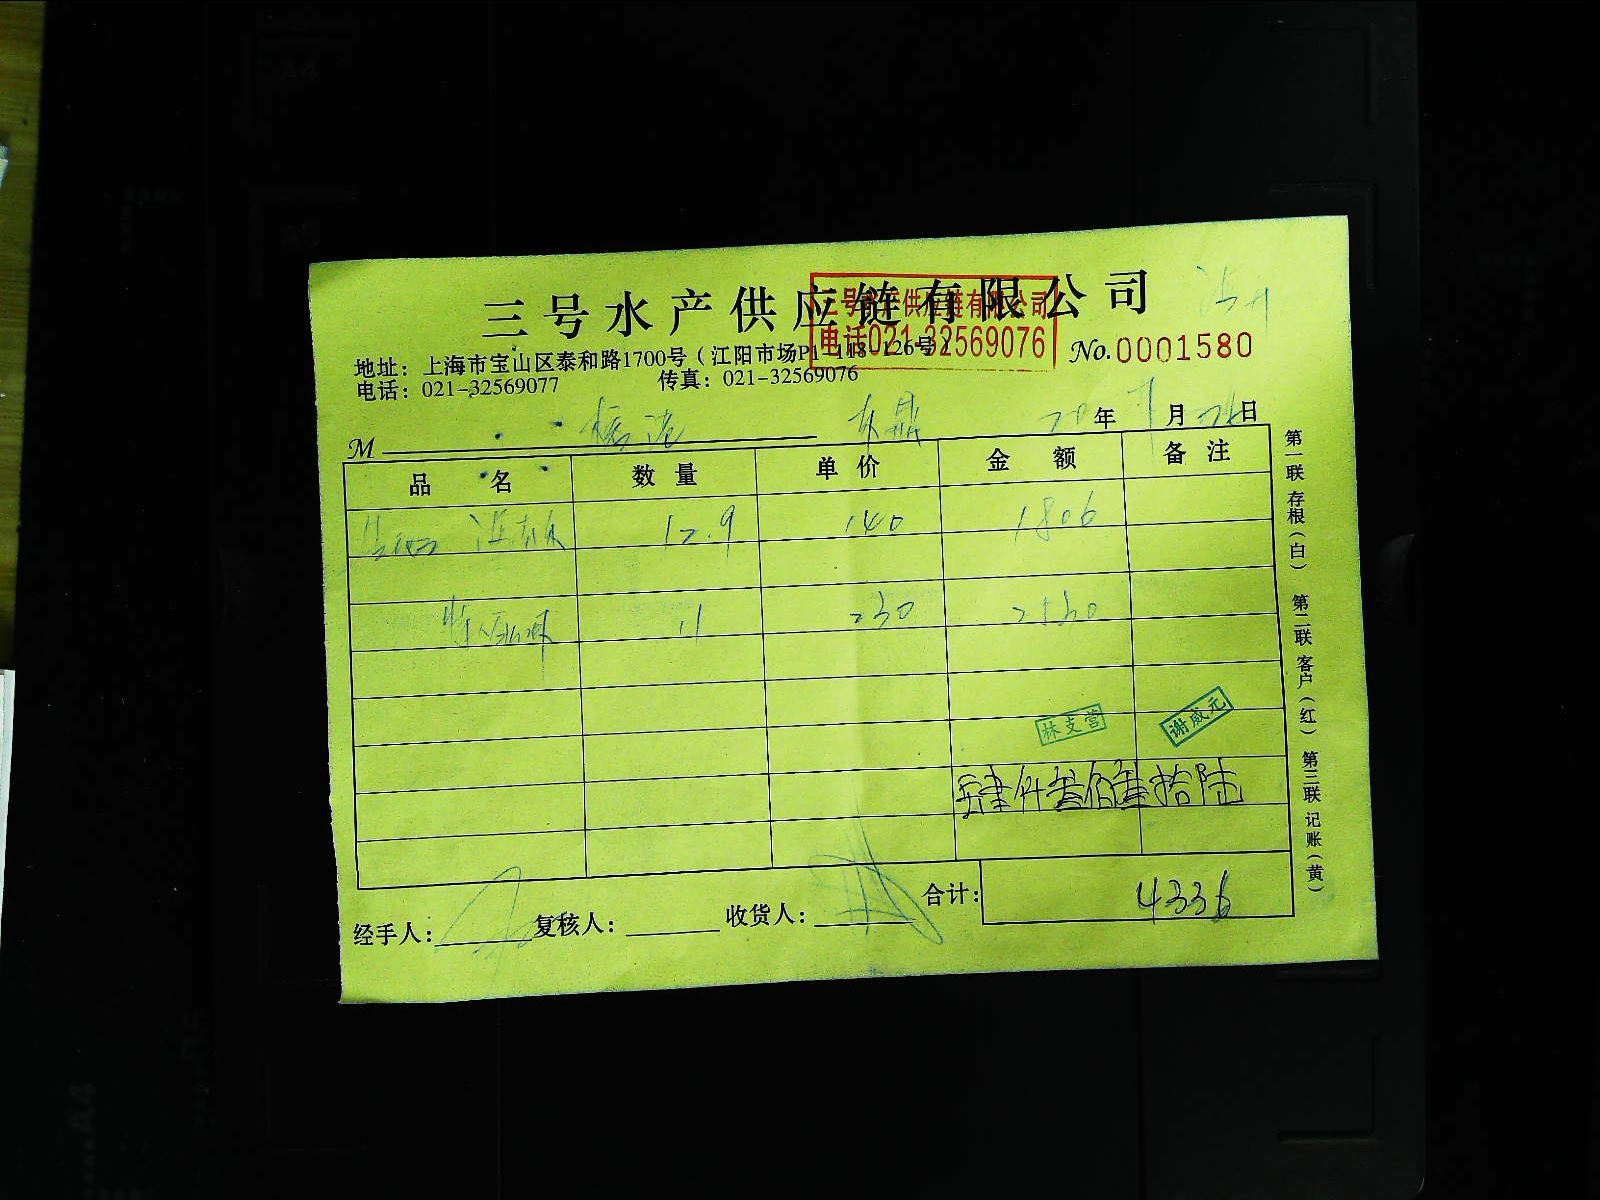 三号水产供应链有限公司
三号水产供应链有限公司
电话021-32569076
No.0001580
地址：上海市宝山区泰和路1700号（江阳市场P1-118-126号）
电话：021-32569077 传真：021-32569076
M 20年 7月 26日
品名 数量 单价 金额 备注
12.9 140 1806
11 230 2530
林支营 谢威元
肆仟叁佰叁拾陆
合计： 4336
经手人： 复核人： 收货人：
第一联 存根（白） 第二联 客户（红） 第三联 记账（黄）